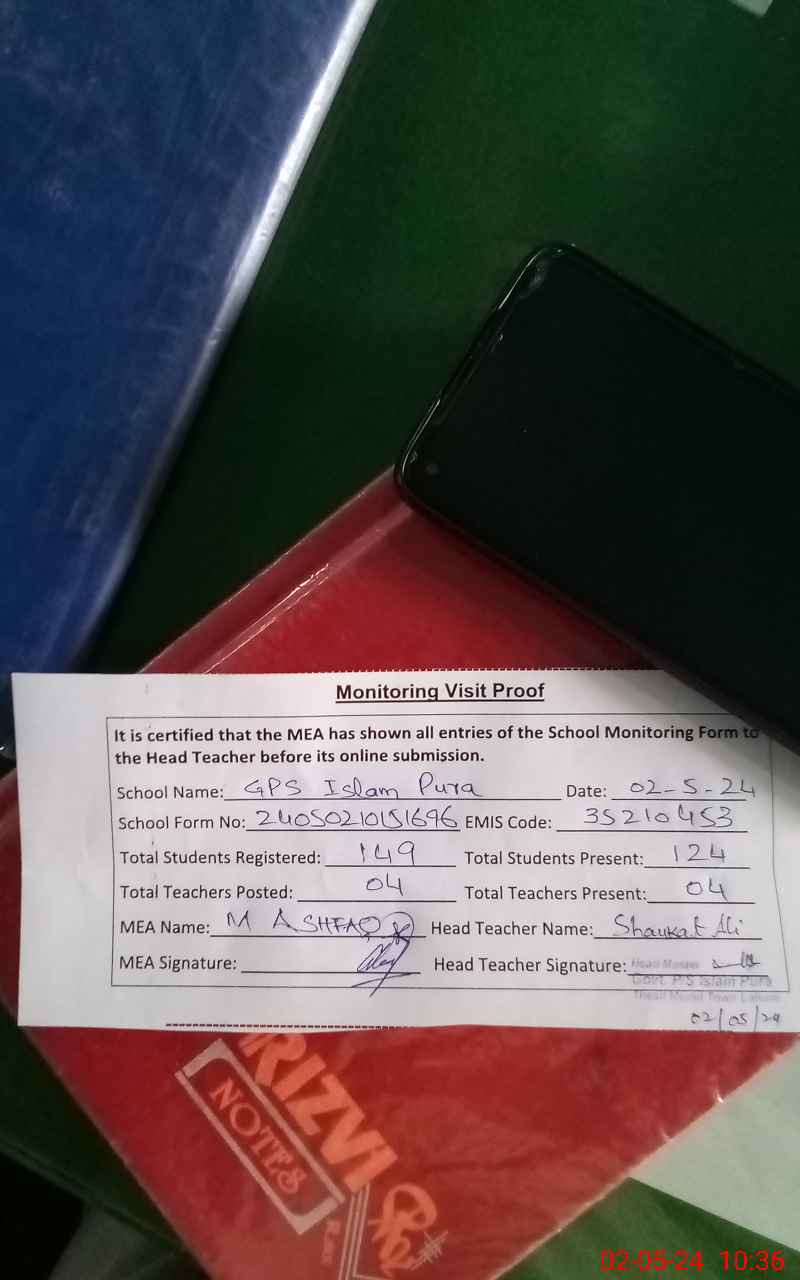 Monitoring Visit Proof
It is certified that the MEA has shown all entries of the School Monitoring Form to
the Head Teacher before its online submission.
School Name: GPS Islam Pura Date: 02-5-24
School Form No: 24050210151696 EMIS Code: 35210453
Total Students Registered: 149 Total Students Present: 124
Total Teachers Posted: 04 Total Teachers Present: 04
MEA Name: M ASHFAQ Head Teacher Name: Shaukat Ali
MEA Signature: Head Teacher Signature: Head Master
Govt. P/S Islam Pura
Tehsil Model Town Lahore
02/05/24
RIZVI
NOTES
02-05-24 10:36